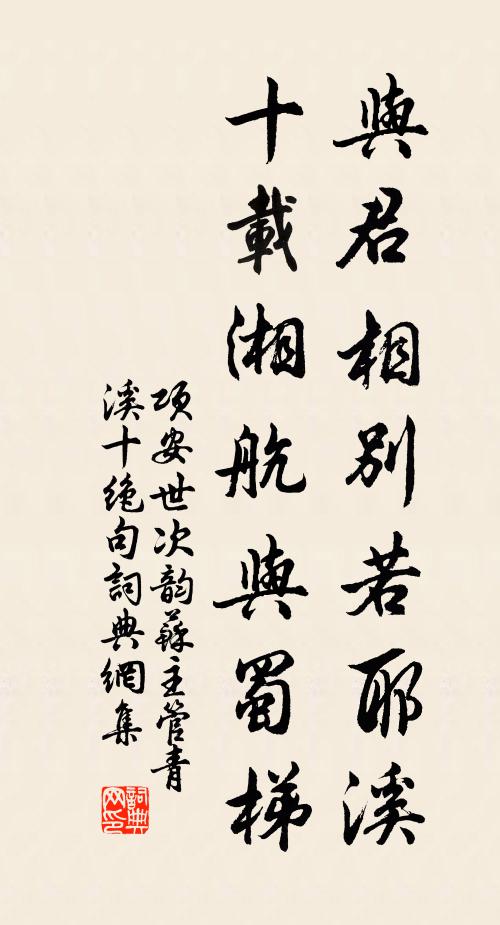 與君相別若耶溪
十載湘航與蜀梯
項安世次韵蘇主管青
溪十绝句詞典網集
詞典
网印